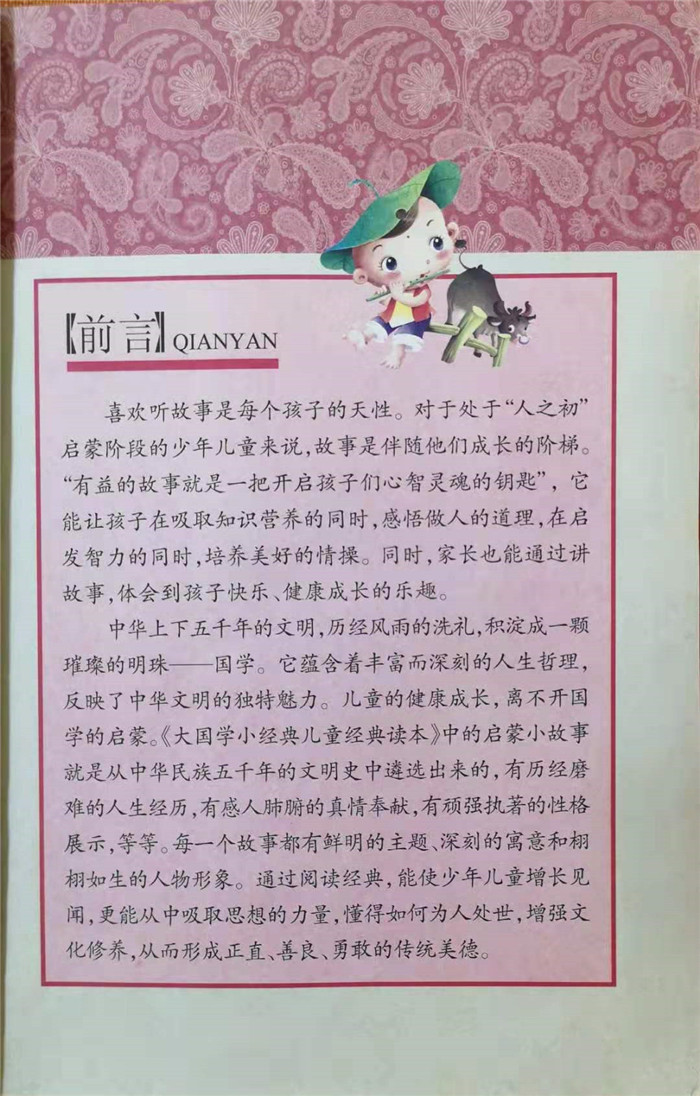 【前言】QIANYAN
喜欢听故事是每个孩子的天性。对于处于“人之初”
启蒙阶段的少年儿童来说,故事是伴随他们成长的阶梯。
“有益的故事就是一把开启孩子们心智灵魂的钥匙”，它
能让孩子在吸取知识营养的同时,感悟做人的道理,在启
发智力的同时,培养美好的情操。同时,家长也能通过讲
故事,体会到孩子快乐、健康成长的乐趣。
中华上下五千年的文明,历经风雨的洗礼,积淀成一颗
璀璨的明珠——国学。它蕴含着丰富而深刻的人生哲理,
反映了中华文明的独特魅力。儿童的健康成长,离不开国
学的启蒙。《大国学小经典儿童经典读本》中的启蒙小故事
就是从中华民族五千年的文明史中遴选出来的,有历经磨
难的人生经历,有感人肺腑的真情奉献,有顽强执著的性格
展示,等等。每一个故事都有鲜明的主题、深刻的寓意和栩
栩如生的人物形象。通过阅读经典,能使少年儿童增长见
闻,更能从中吸取思想的力量,懂得如何为人处世,增强文
化修养,从而形成正直、善良、勇敢的传统美德。